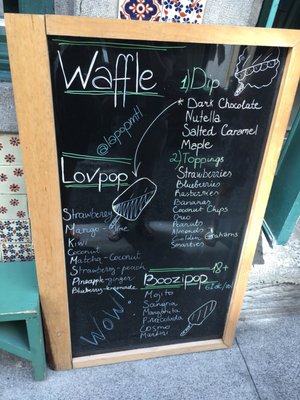 Waffle
@lapopmtl
1) Dip
* Dark Chocolate
Nutella
Salted Caramel
Maple
2) Toppings
Strawberries
Blueberries
Rasberries
Bananas
Coconut Chips
Oreo
Peanuts
Almonds
Grahams
Smarties
Lovpop
Strawberry
Mango-lime
Kiwi
Coconut
Matcha-Coconut
Strawberry-peach
Pineapple-ginger
Blueberry-lemonade
WOW!
Boozipop 18+
Mojito
Sangria
Margarita
Pinacolada
Cosmo
Martini